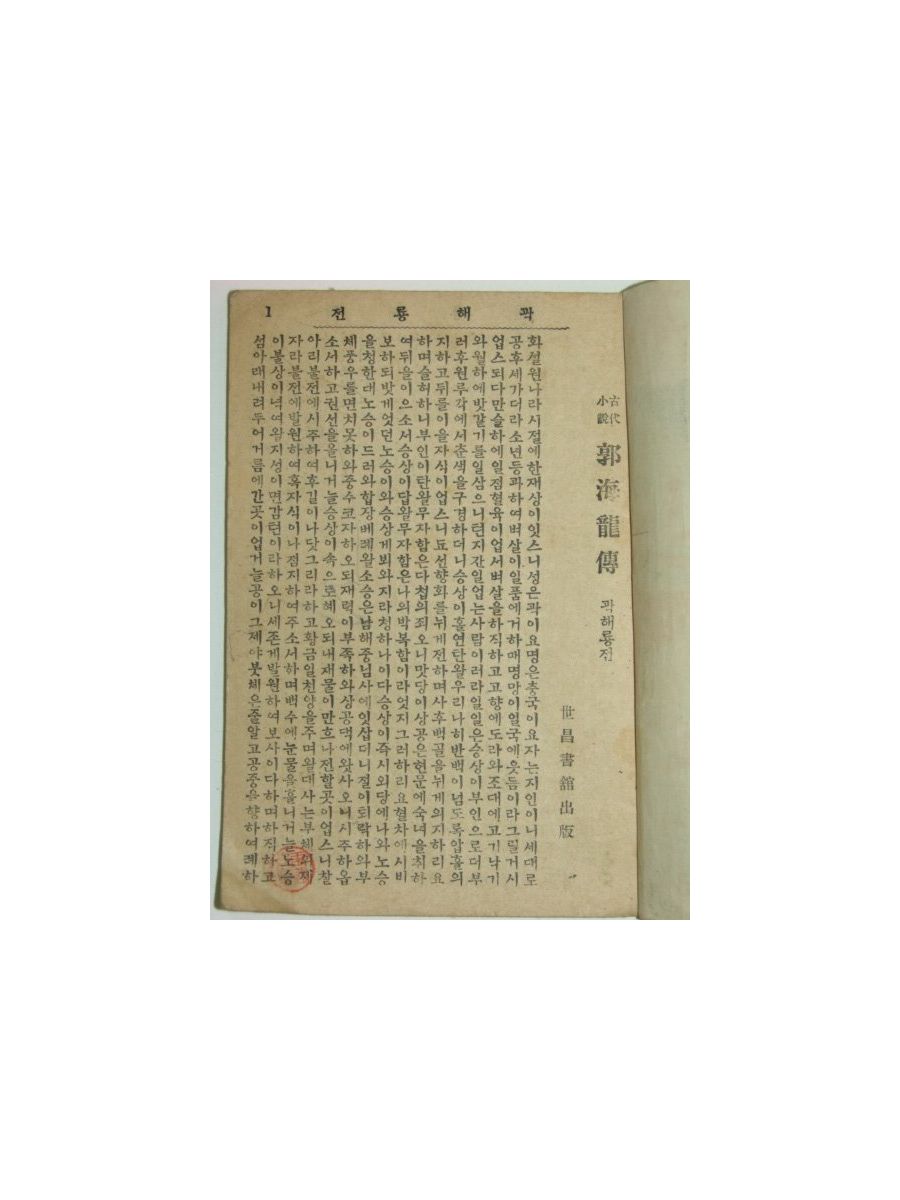 곽해룡전 1
古代小說 郭海龍傳 곽해룡전
世昌書舘出版
화셜원나라시절에한재상이잇스니성은곽이요명은충국이요자는지인이니세대로
공후세가더라소년등과하여벼살이일품에거하매명망이일국에웃듬이라그럴거시
업스되다만슬하에일점혈육이업서벼살을하직하고고향에도라와조대에고기낙기
와월하에밧갈기를일삼으니텬지간일업는사람이러라일일은승상이부인으로더부
러후원루각에서춘색을구경하더니승상이홀연탄왈우리나히반백이넘도록압흘의
지하고뒤를이을자식이업스니됴선향화를뉘게전하며사후백골을뉘게의지하리요
하며슬허하니부인이탄왈무자함은다쳡의죄오니맛당이상공은현문에숙녀을취하
여뒤을이으소서승상이답왈무자함은나의박복함이라엇지그러하리요혈차에시비
보하되밧게엇던노승이와승상게뵈와지라청하나이다승상이즉시외당에나와노승
을청한대노승이드러와합장베례왈소승은남해중님사에잇삽더니절이퇴락하와부
체풍우를면치못하와중수코자하오되재력이부족하와상공댁에왓사오니시주하옵
소서하고권선을올니거늘승상이속으로혜오되내재물이만흐나전할곳이업스니찰
아리불전에시주하여후길이나닷그리라하고황금일천양을주며왈대사는부체의제
자라불전에발원하여혹자식이나점지하여주소서하며백수에눈물을흘니거는노승
이불상이녁여왈지성이면감텬이라하오니세존게발원하여보사이다하며하직하고
섬아래내려두어거름에간곳이업거늘공이그제야붓체은줄알고공중을향하여례하